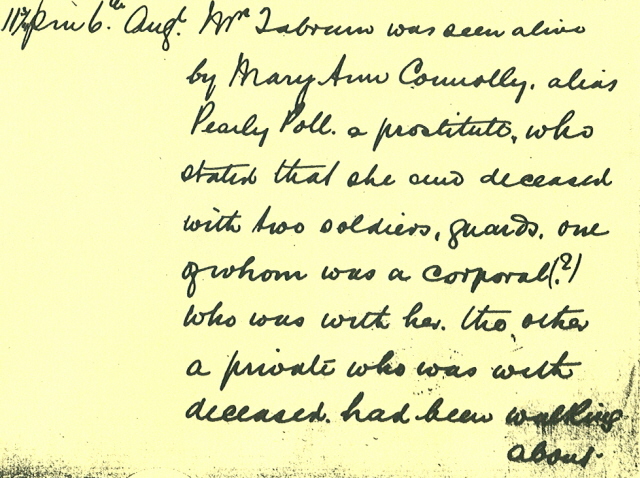 pm 6th Augt. Mrs Tabram was seen alive
by Mary Ann Connolly, alias
Pearly Poll. a prostitute, who
stated that she and deceased
with two soldiers, guards, one
of whom was a corporal(?)
who was with her. the other
a private who was with
deceased. had been walking
about.